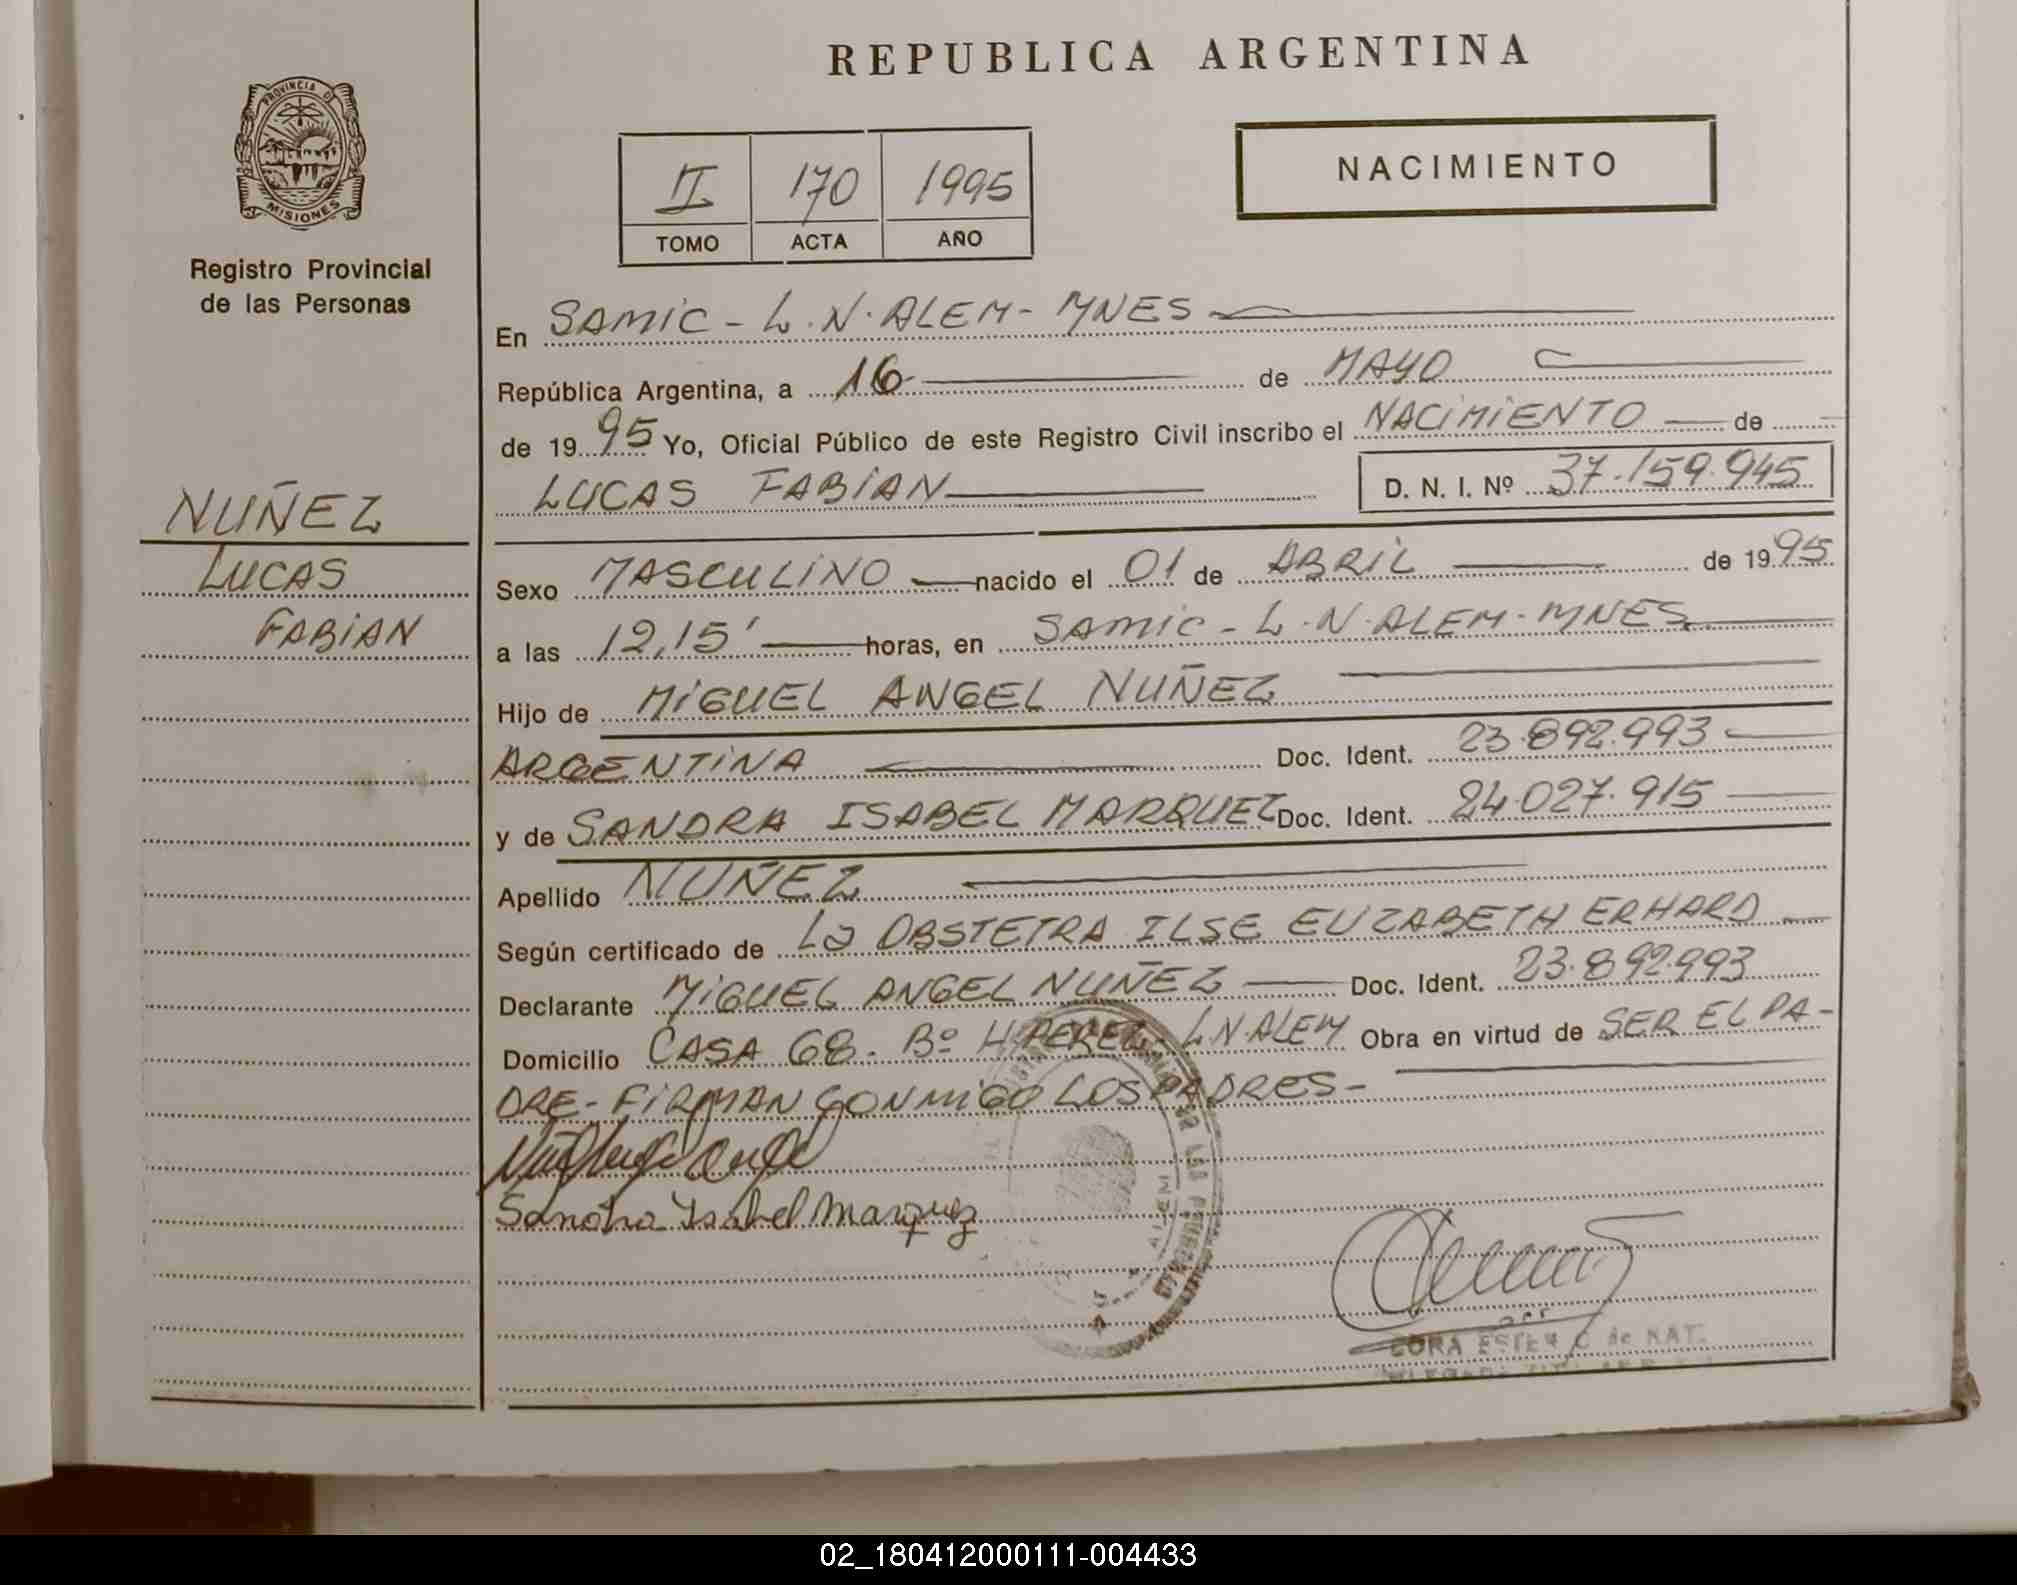 REPUBLICA ARGENTINA
PROVINCIA DE
MISIONES
Registro Provincial
de las Personas
II 170 1995
TOMO ACTA AÑO
NACIMIENTO
En SAMIC - L.N. ALEM - MNES
República Argentina, a 16 de MAYO
de 1995 Yo, Oficial Público de este Registro Civil inscribo el NACIMIENTO de
LUCAS FABIAN D. N. I. Nº 37.159.945
NUÑEZ
LUCAS
FABIAN
Sexo MASCULINO nacido el 01 de ABRIL de 1995
a las 12,15' horas, en SAMIC - L.N. ALEM - MNES
Hijo de MIGUEL ANGEL NUÑEZ
ARGENTINA Doc. Ident. 23.892.993
y de SANDRA ISABEL MARQUEZ Doc. Ident. 24.027.915
Apellido NUÑEZ
Según certificado de La OBSTETRA ILSE ELIZABETH ERHARD
Declarante MIGUEL ANGEL NUÑEZ Doc. Ident. 23.892.993
Domicilio CASA 68. Bº H. PEREZ - L.N. ALEM Obra en virtud de SER EL PA-
DRE - FIRMAN CONMIGO LOS PADRES -
Sandra Isabel Marquez
ALEM
CORA ESTER de NAT
02_180412000111-004433